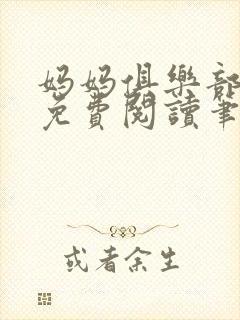 妈妈俱樂部
免費閱讀筆
或者余生